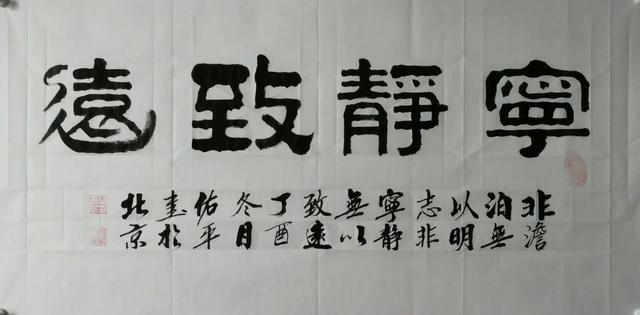 寧靜致遠
非澹
泊無
以明
志非
寧静
無以
致遠
丁酉
冬月
佑平
書於
北京